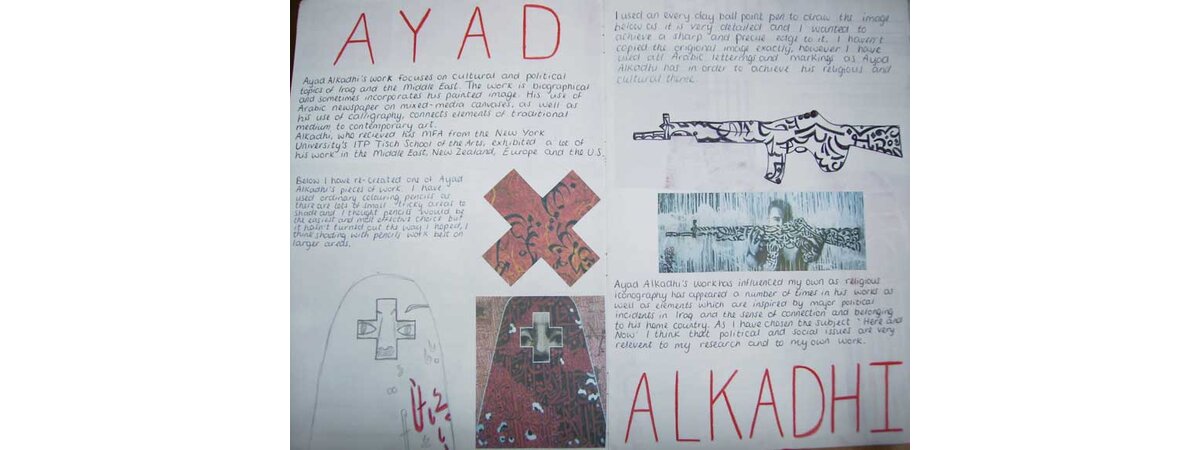 AYAD
Ayad Alkadhi's work focuses on cultural and political
topics of Iraq and the Middle East. The work is biographical
and sometimes incorporates his painted image. His use of
Arabic newspaper on mixed-media canvases, as well as
his use of calligraphy, connects elements of traditional
medium to contemporary art.
Alkadhi, who recieved his MFA from the New York
University's ITP Tisch School of the Arts, exhibited a lot of
his work in the Middle East, New Zealand, Europe and the U.S.
Below I have re-created one of Ayad
Alkadhi's pieces of work. I have
used ordinary colouring pencils as
there are lots of small tricky areas to
shade and I thought pencils would be
the easiest and most effective choice but
it hasn't turned out the way I hoped, I
think shading with pencils work best on
larger areas.
I used an every day ball point pen to draw the image
below as it is very detailed and I wanted to
achieve a sharp and precise edge to it. I haven't
copied the origional image exactly, however I have
used Arabic lettering and markings as Ayad
Alkadhi has in order to achieve his religious and
cultural theme.
Ayad Alkadhi's work has influenced my own as religious
iconography has appeared a number of times in his works as
well as elements which are inspired by major political
incidents in Iraq and the sense of connection and belonging
to his home country. As I have chosen the subject "Here and
Now" I think that political and social issues are very
relevent to my research and to my own work.
ALKADHI